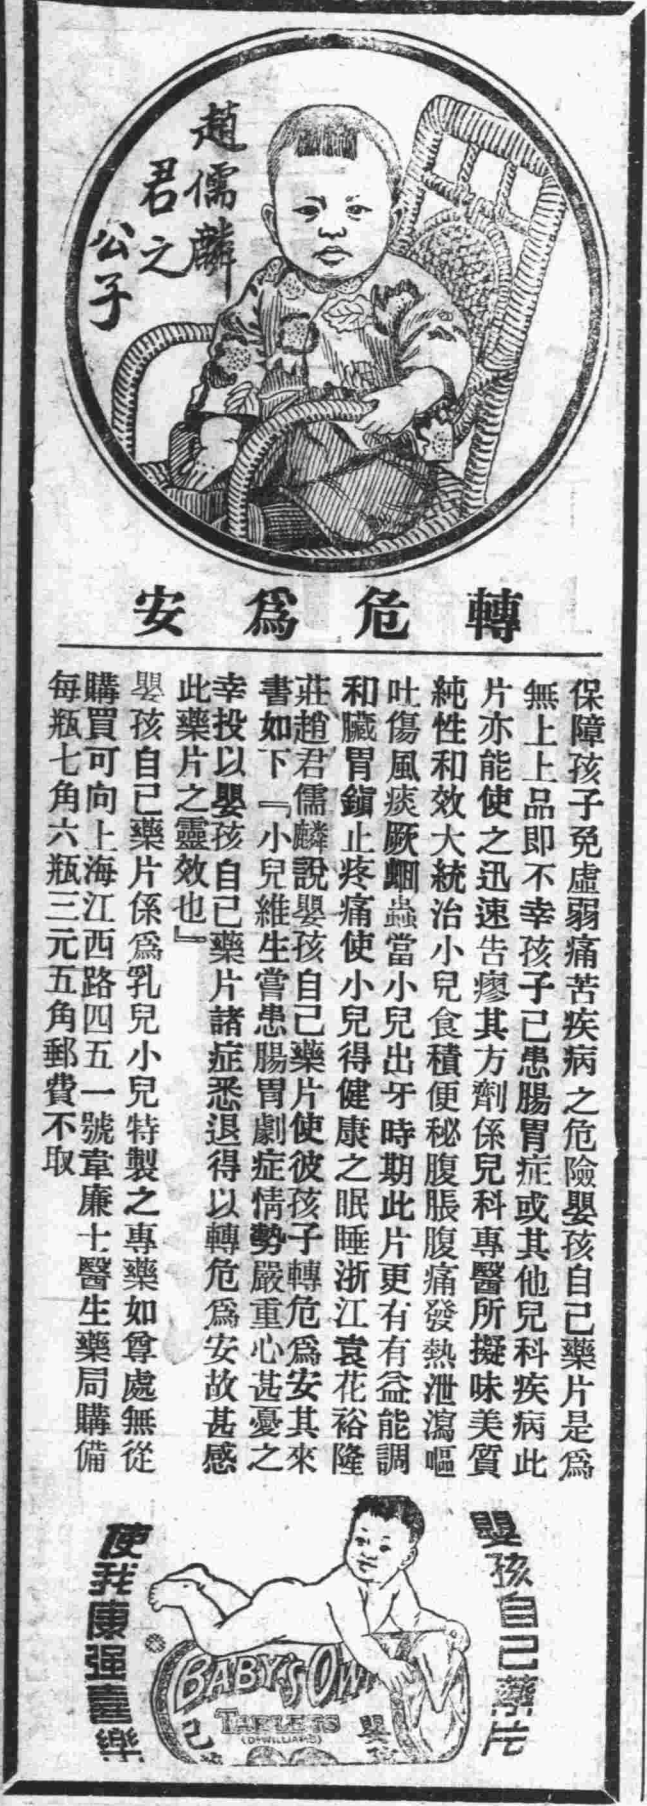 趙儒麟
君之
公子
轉危爲安
保障孩子免虛弱痛苦疾病之危險嬰孩自己藥片是爲
無上上品即不幸孩子已患腸胃症或其他兒科疾病此
片亦能使之迅速告瘳其方劑係兒科專醫所擬味美質
純性和效大統治小兒食積便秘腹脹腹痛發熱泄瀉嘔
吐傷風痰厥蛔蟲當小兒出牙時期此片更有有益能調
和臟胃鎮止疼痛使小兒得健康之眠睡浙江袁花裕隆
莊趙君儒麟說嬰孩自己藥片使彼孩子轉危爲安其來
書如下『小兒維生嘗患腸胃劇症情勢嚴重心甚憂之
幸投以嬰孩自己藥片諸症悉退得以轉危爲安故甚感
此藥片之靈效也』
嬰孩自己藥片係爲乳兒小兒特製之專藥如尊處無從
購買可向上海江西路四五一號韋廉士醫生藥局購備
每瓶七角六瓶三元五角郵費不取
嬰孩自己藥片
BABY'S OWN
TABLETS
(DR WILLIAMS)
嬰孩
己
使我康强喜樂